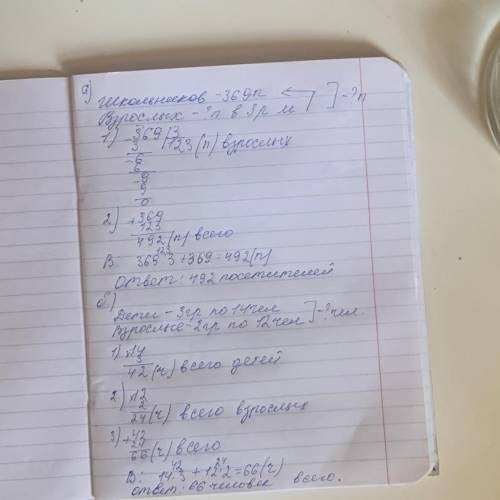 а)
Школьников - 369п
Взрослых - ?п в 3р м ] - ?п
1) - 369 | 3
3 | 123 (п) взрослых
- 6
6
- 9
9
0
2) + 369
123
492 (п) всего
В: 369 : 3 + 369 = 492 (п)
123
Ответ: 492 посетителей
б)
Дети - 3гр по 14чел
Взрослые - 2гр по 12чел ] - ?чел.
1) × 14
3
42 (ч) всего детей
2) × 12
2
24 (ч) всего взрослых
3) + 42
24
66 (ч) всего
42 24
В: 14 · 3 + 12 · 2 = 66 (ч)
Ответ: 66 человек всего.